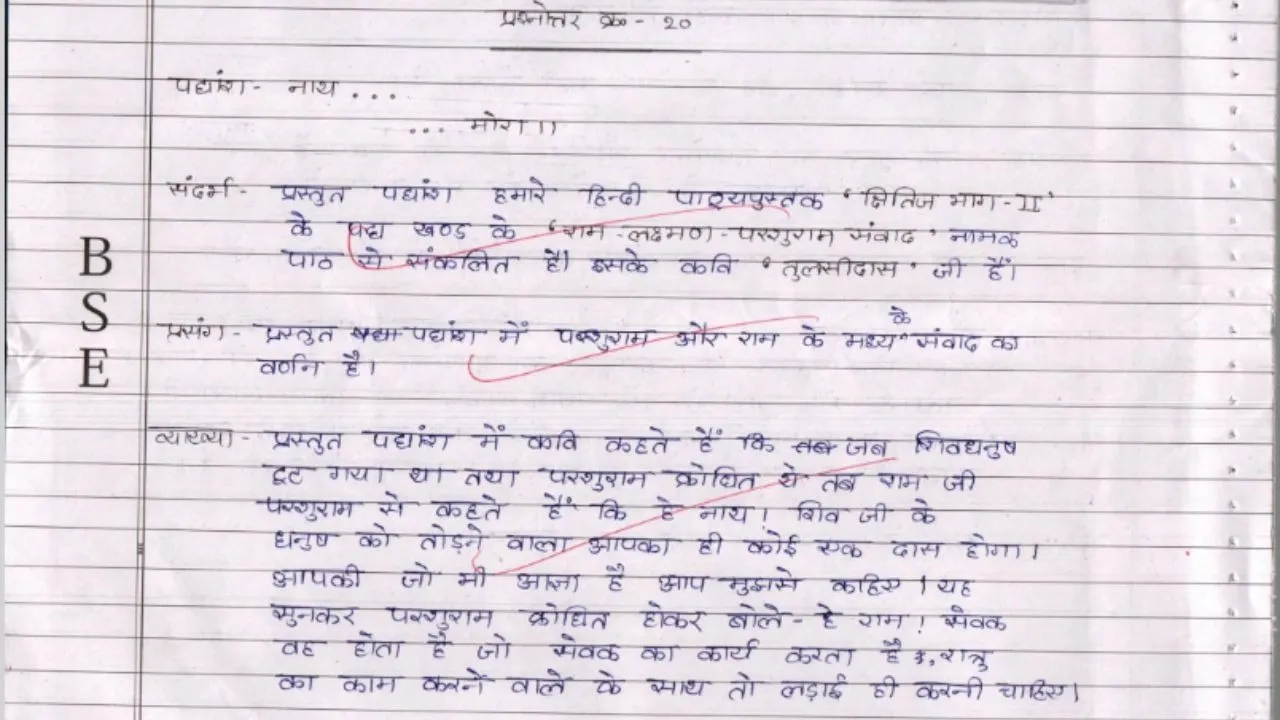 प्रश्नोत्तर क्र - 20
पद्यांश - नाथ ...
... मोरा ।।
संदर्भ - प्रस्तुत पद्यांश हमारे हिन्दी पाठ्यपुस्तक 'क्षितिज भाग - II'
के पद्य खण्ड के 'राम - लक्ष्मण - परशुराम संवाद' नामक
पाठ से संकलित है। इसके कवि 'तुलसीदास' जी हैं।
प्रसंग - प्रस्तुत पद्यांश में परशुराम और राम के मध्य के संवाद का
वर्णन है।
व्याख्या - प्रस्तुत पद्यांश में कवि कहते हैं कि जब शिवधनुष
टूट गया था तथा परशुराम क्रोधित थे तब राम जी
परशुराम से कहते हैं कि हे नाथ! शिव जी के
धनुष को तोड़ने वाला आपका ही कोई एक दास होगा।
आपकी जो भी आज्ञा है आप मुझसे कहिए। यह
सुनकर परशुराम क्रोधित होकर बोले - हे राम! सेवक
वह होता है जो सेवक का कार्य करता है, शत्रु
का काम करने वाले के साथ तो लड़ाई ही करनी चाहिए।
B
S
E